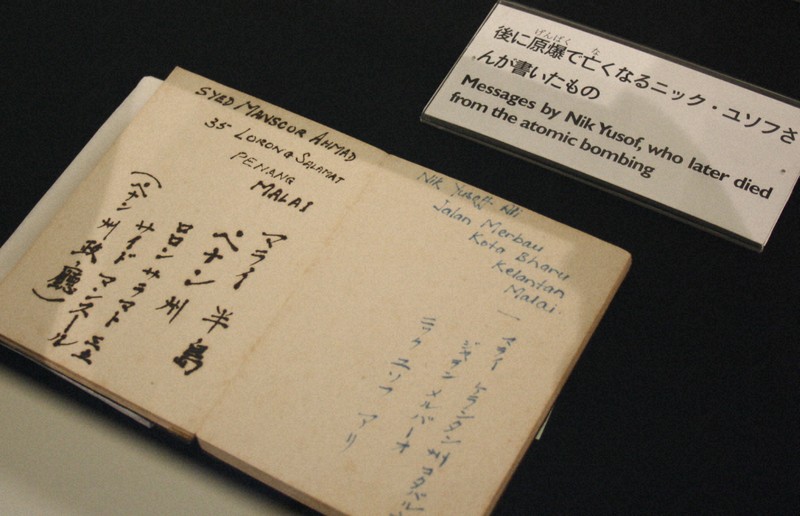 後に原爆で亡くなるニック・ユソフさ
んが書いたもの
Messages by Nik Yusof, who later died
from the atomic bombing
SYED MANSOOR AHMAD
35 LORONG SALAMAT
PENANG
MALAI
マライ 半島
ペナン 州
ロロン サラマト 三五
サイド マンスール
(ペナン 州 政廳)
Nik Yusoff Ali
Jalan Merbau
Kota Bharu
Kelantan
Malai.
マライ ケランタン州 コタバル
ジャラン メルバーオ
ニック ユソフ アリ